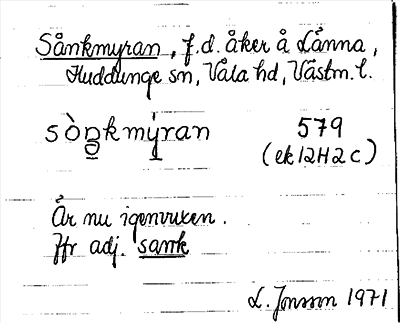 Sånkmyran, f.d. åker å Lånna,
Huddunge sn, Våla hd, Västm. l.
sòn̥kmýran 579
(ek 12H2c)
Är nu igenvuxen.
Jfr adj. sank
L. Jonsson 1971